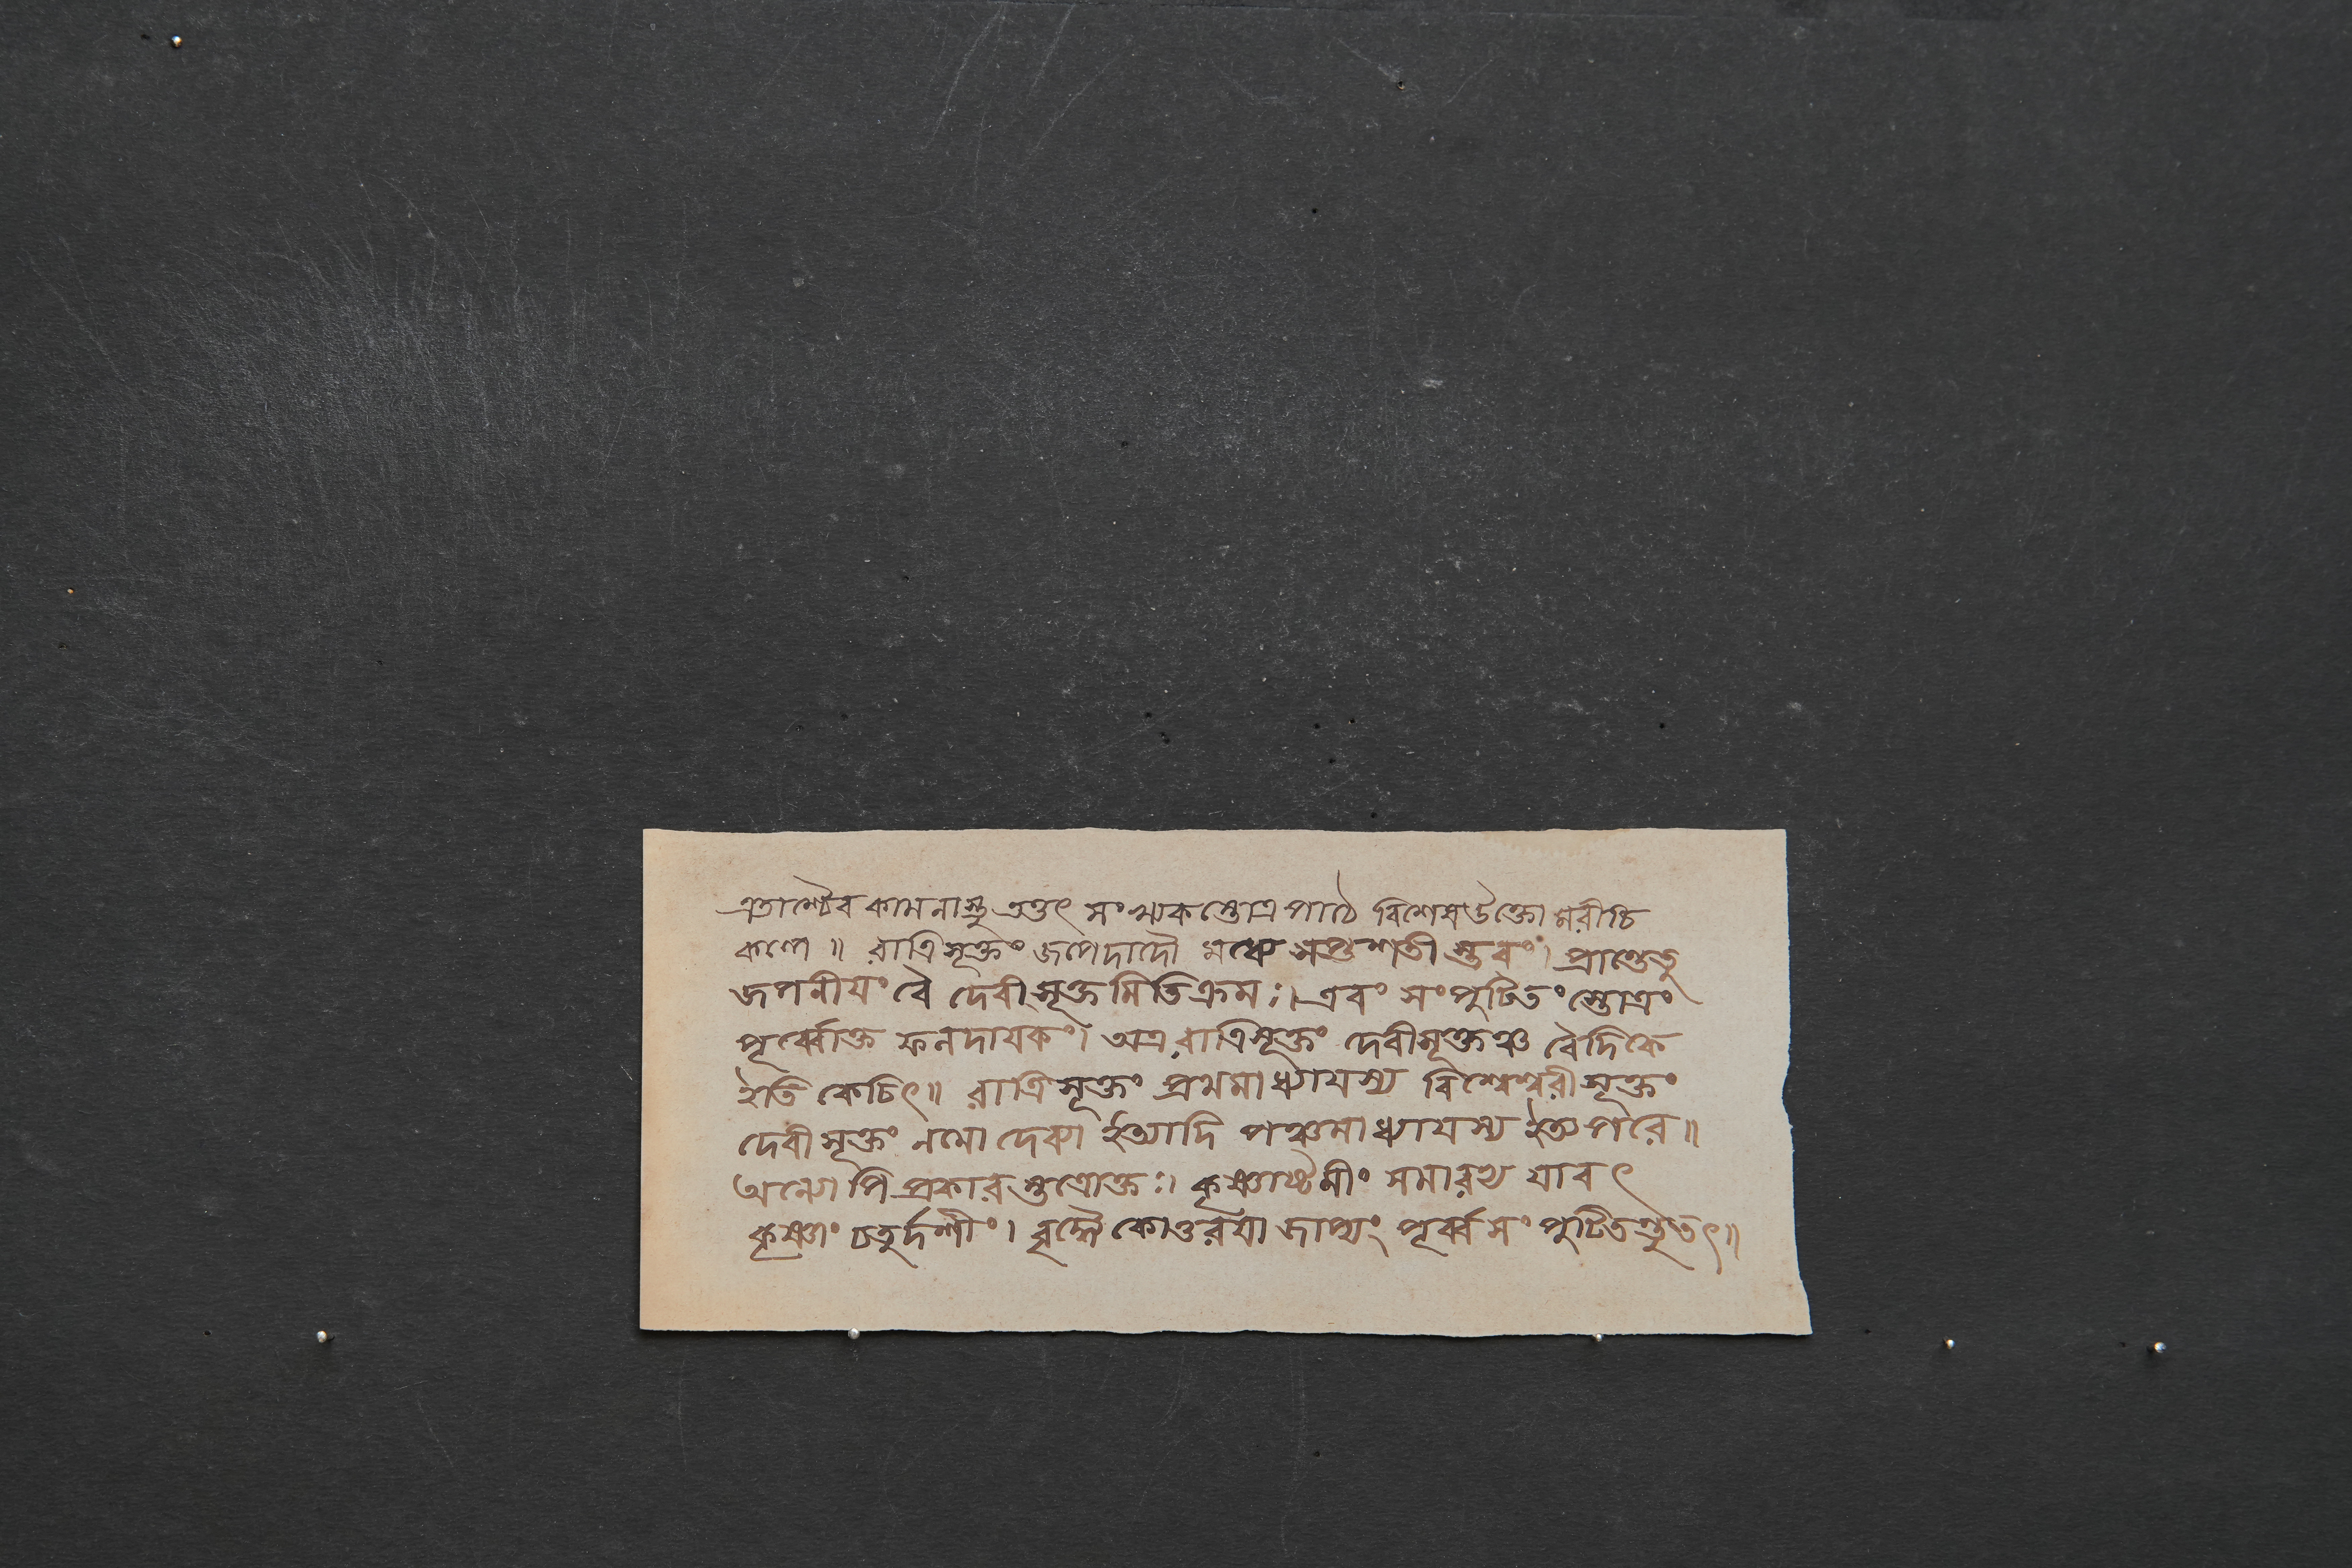 এতাস্বেব কামনাসু তত্তৎ সংখ্যকস্তোত্রপাঠে বিশেষউক্তো মরীচি
কল্পে ॥ রাত্রিসূক্তং জপেদাদৌ মধ্যে সপ্তশতী স্তবং। প্রান্তেতু
জপনীয়ং বৈ দেবীসূক্তমিতিক্রমঃ। এবং সংপুটিতং স্তোত্রং
পূর্ব্বোক্ত ফলদায়কং। অত্র রাত্রিসূক্তং দেবীসূক্তঞ্চ বৈদিকে
ইতি কেচিৎ॥ রাত্রিসূক্তং প্রথমাধ্যায়স্য বিশ্বেশ্বরীসূক্তং
দেবীসূক্তং নমো দেব্যা ইত্যাদি পঞ্চমাধ্যায়স্য ইত্যপরে॥
অন্যোপি প্রকারস্তত্রোক্তঃ। কৃষ্ণাষ্টমীং সমারভ্য যাবৎ
কৃষ্ণাং চতুর্দশীং। বৃদ্ধ্যৈকোত্তরয়া জাপ্যং পূর্ব্বসংপুটিতন্তুতৎ॥